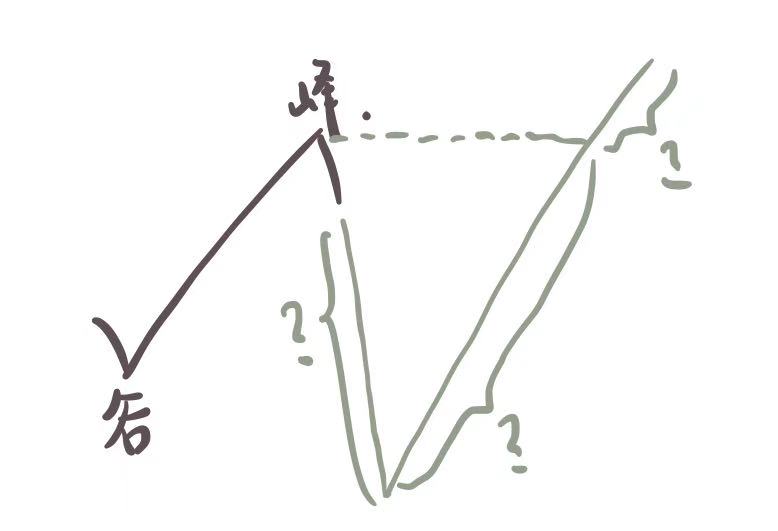 峰.
?
?
?
谷